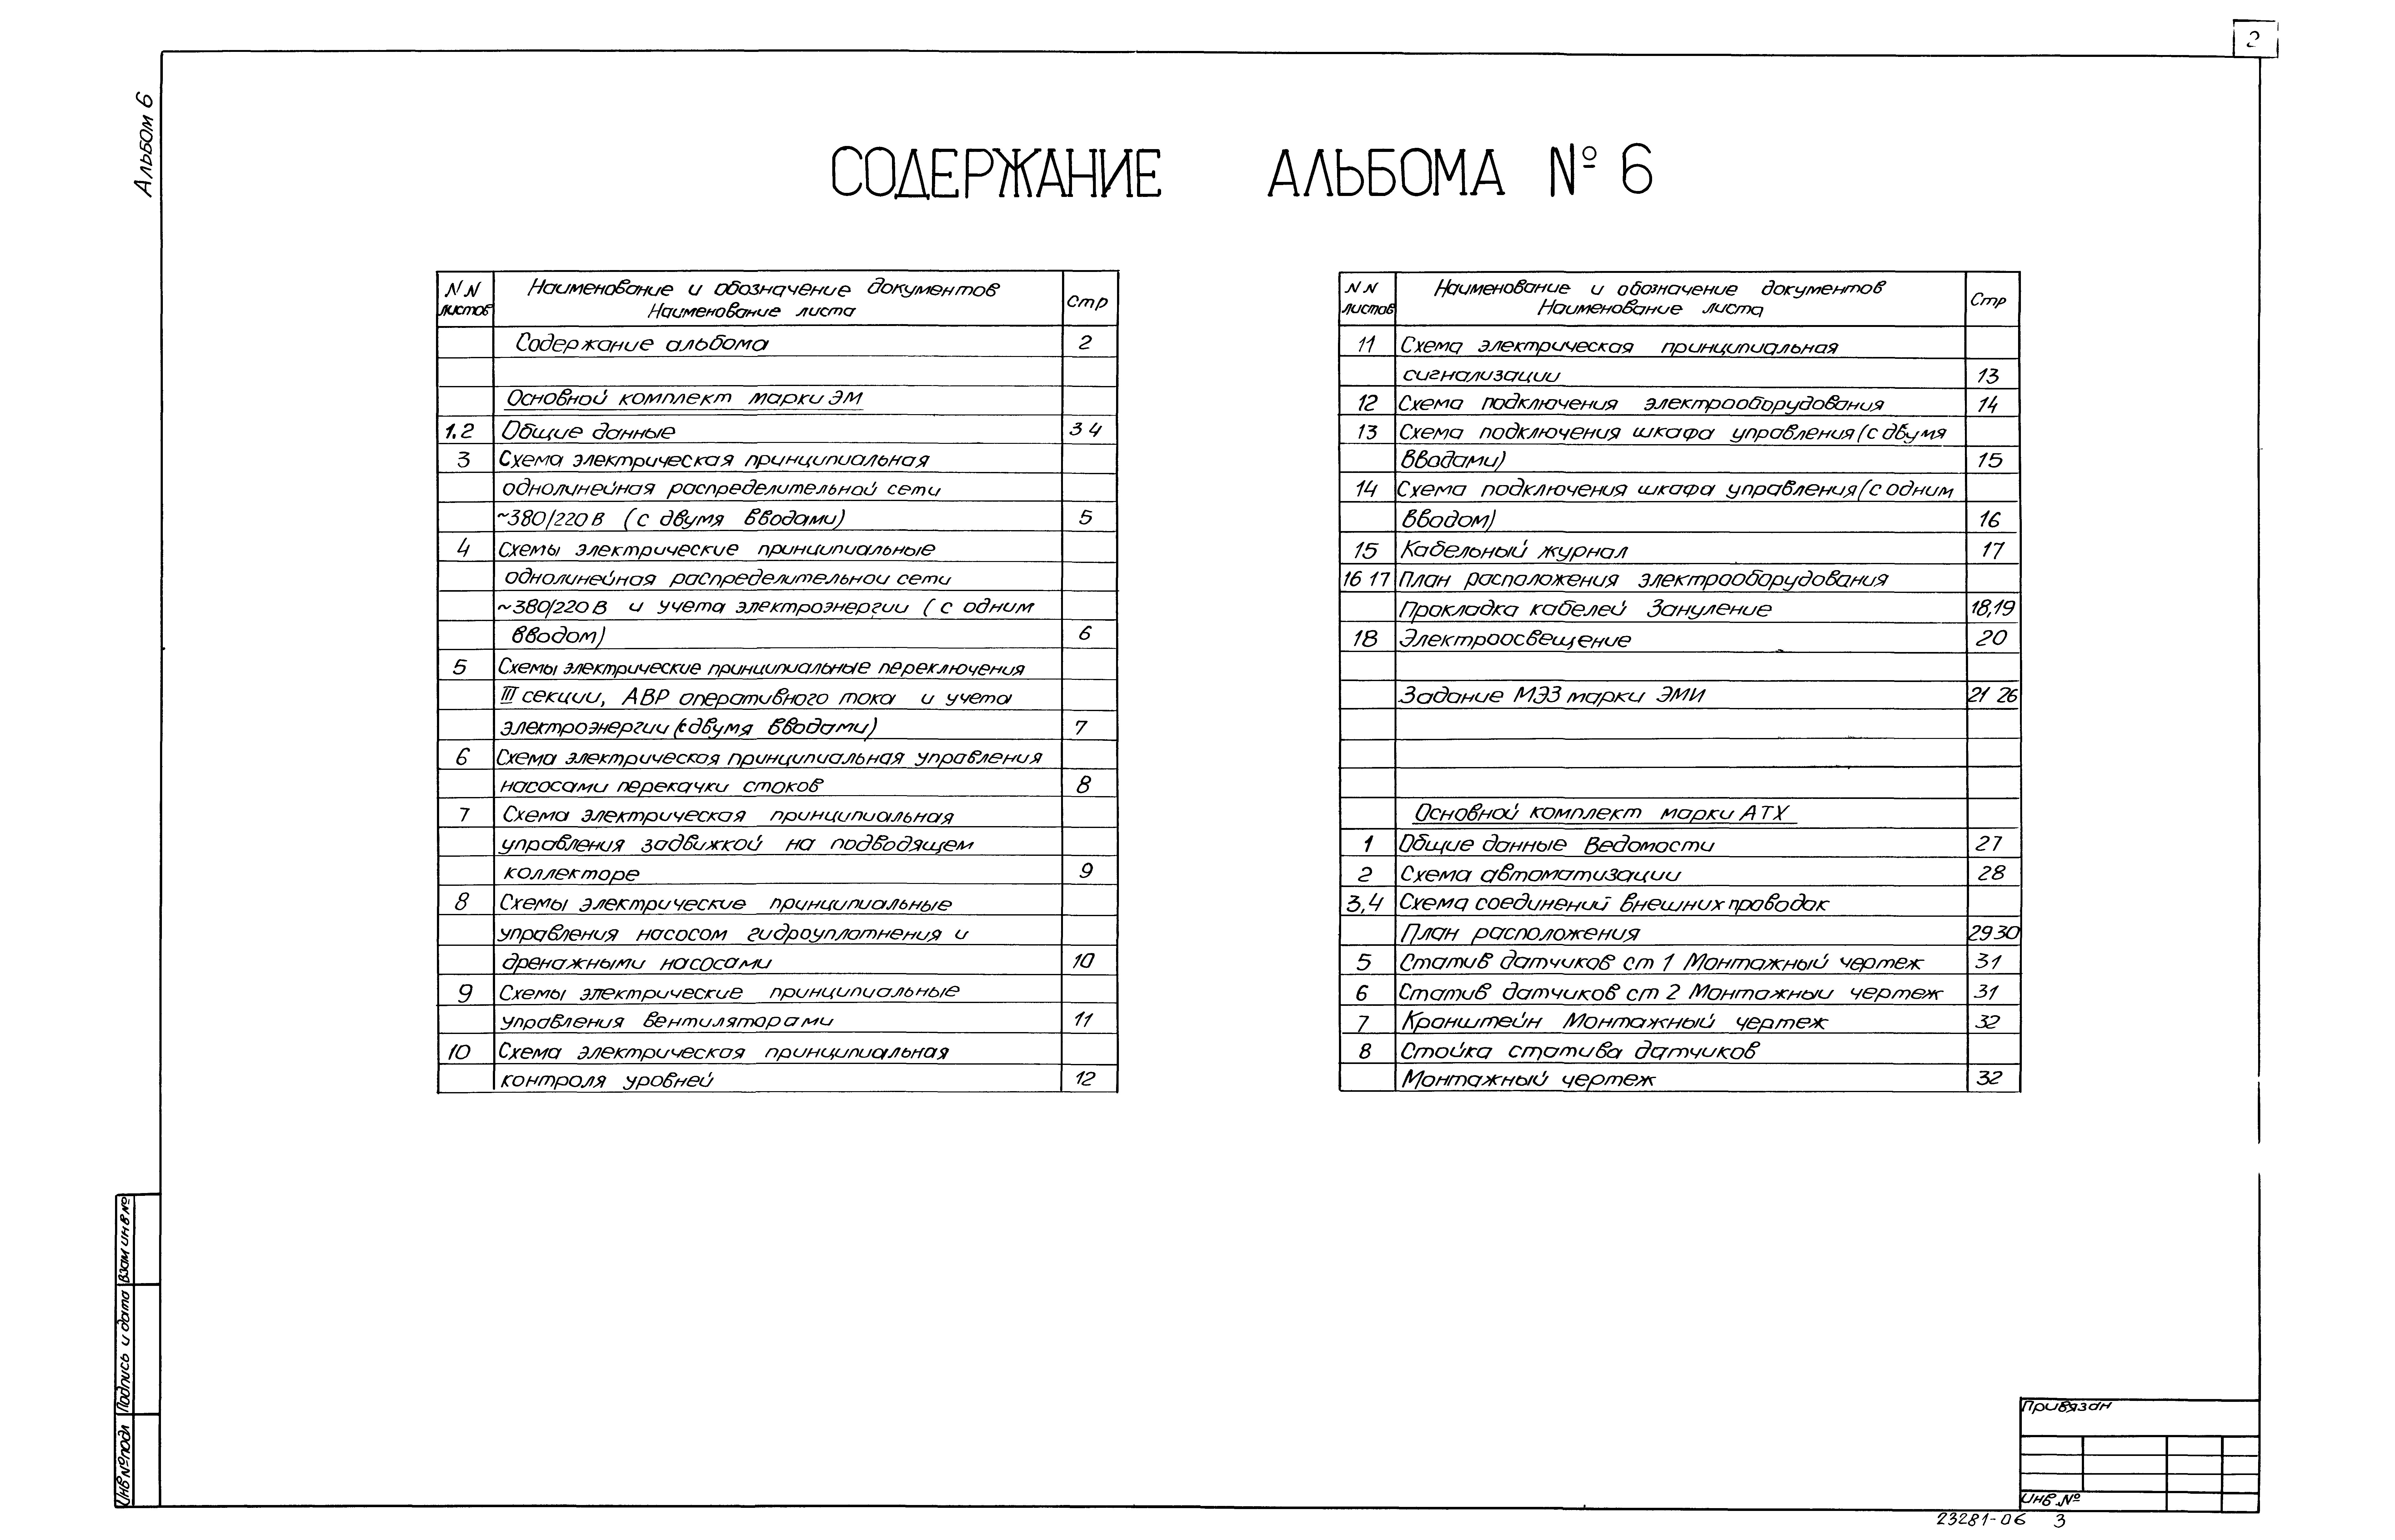 2
Альбом 6
СОДЕРЖАНИЕ АЛЬБОМА № 6
NN листов
Наименование и обозначение документов
Наименование листа
Стр
Содержание альбома 2
Основной комплект марки ЭМ
1.2 Общие данные 3 4
3 Схема электрическая принципиальная
однолинейная распределительной сети
~380/220 В (с двумя вводами) 5
4 Схемы электрические принципиальные
однолинейная распределительной сети
~380/220 В и учета электроэнергии (с одним
вводом) 6
5 Схемы электрические принципиальные переключения
III секции, АВР оперативного тока и учета
электроэнергии (с двумя вводами) 7
6 Схема электрическая принципиальная управления
насосами перекачки стоков 8
7 Схема электрическая принципиальная
управления задвижкой на подводящем
коллекторе 9
8 Схемы электрические принципиальные
управления насосом гидроуплотнения и
дренажными насосами 10
9 Схемы электрические принципиальные
управления вентиляторами 11
10 Схема электрическая принципиальная
контроля уровней 12
NN листов
Наименование и обозначение документов
Наименование листа
Стр
11 Схема электрическая принципиальная
сигнализации 13
12 Схема подключения электрооборудования 14
13 Схема подключения шкафа управления (с двумя
вводами) 15
14 Схема подключения шкафа управления (с одним
вводом) 16
15 Кабельный журнал 17
16 17 План расположения электрооборудования
Прокладка кабелей Зануление 18,19
18 Электроосвещение 20
Задание МЭЗ марки ЭМИ 21 26
Основной комплект марки АТХ
1 Общие данные Ведомости 27
2 Схема автоматизации 28
3,4 Схема соединений внешних проводок
План расположения 29 30
5 Статив датчиков ст 1 Монтажный чертеж 31
6 Статив датчиков ст 2 Монтажный чертеж 31
7 Кронштейн Монтажный чертеж 32
8 Стойка статива датчиков
Монтажный чертеж 32
Взам инв №
Подпись и дата
Инв № подл
Привязан
Инв. №
23281-06 3